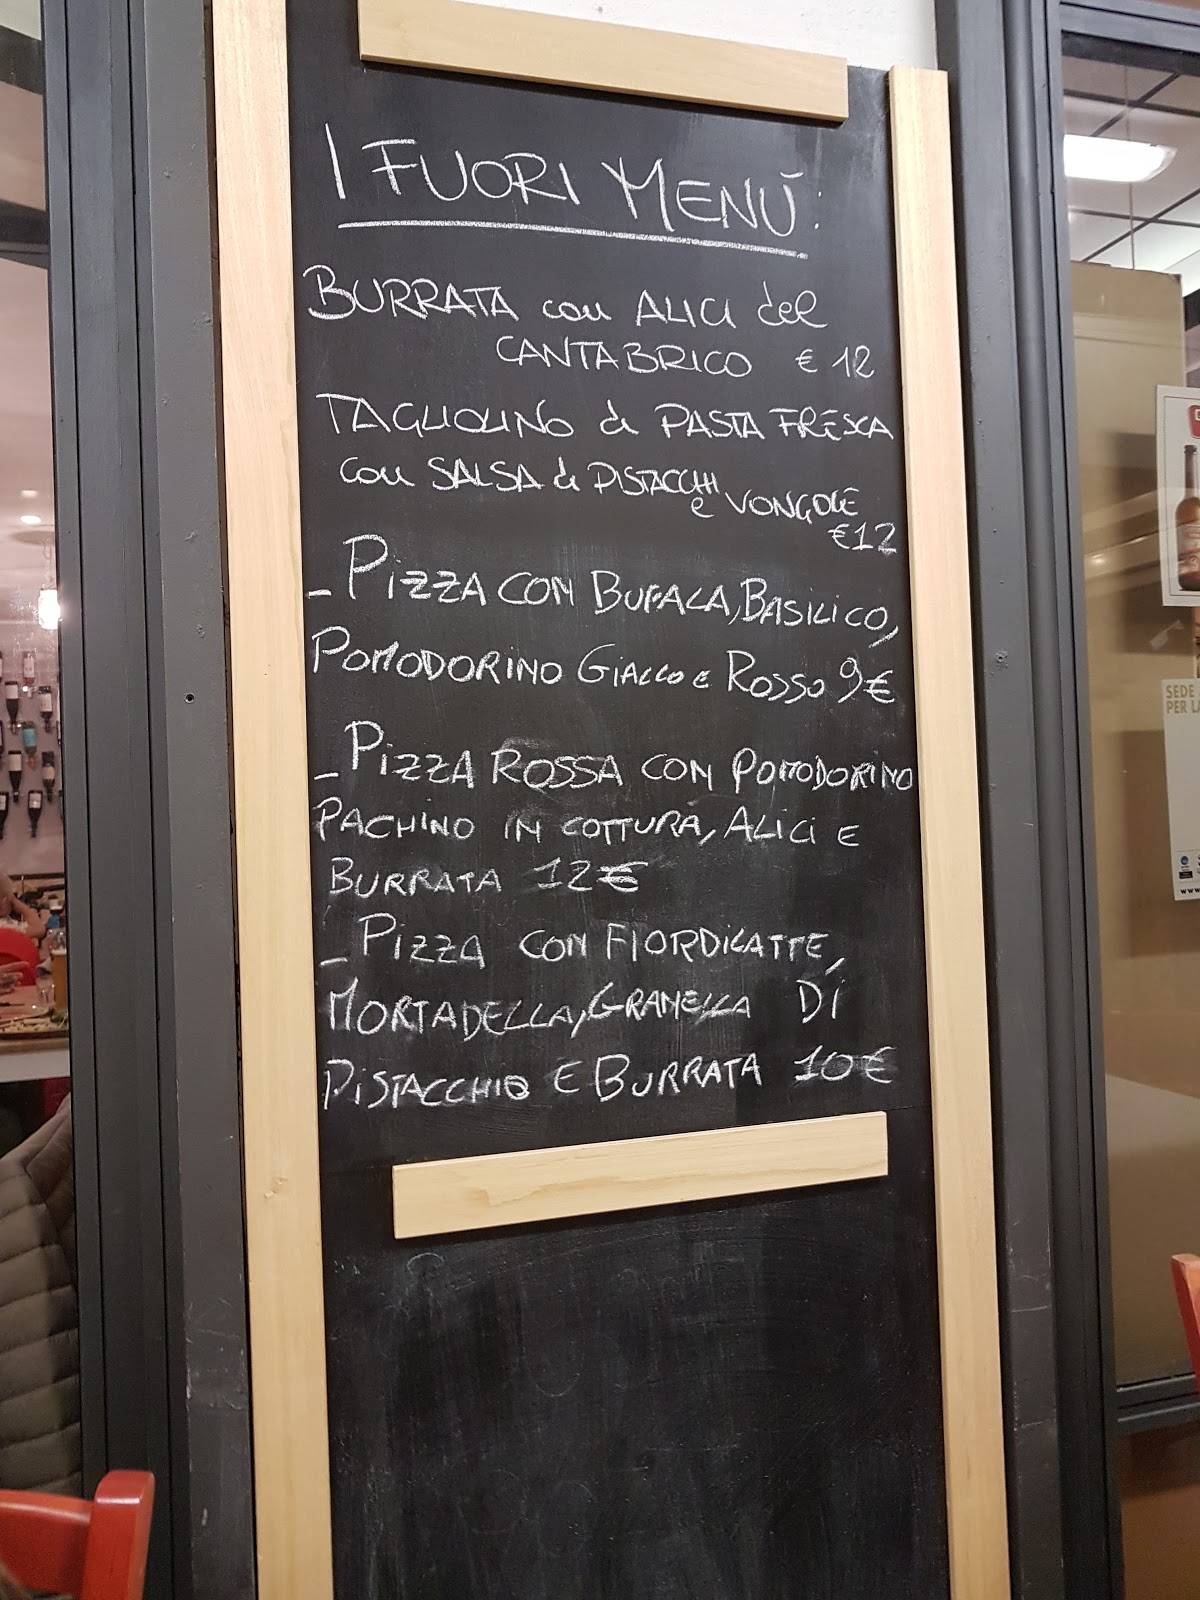 I FUORI MENÙ:
BURRATA con ALICI del
CANTABRICO € 12
TAGLIOLINO di PASTA FRESCA
con SALSA di PISTACCHI
e VONGOLE
€12
- PIZZA CON BUFALA, BASILICO,
POMODORINO GIALLO E ROSSO 9€
- PIZZA ROSSA CON POMODORINO
PACHINO IN COTTURA, ALICI E
BURRATA 12€
- PIZZA CON FIORDILATTE,
MORTADELLA, GRANELLA DI
PISTACCHIO E BURRATA 10€
SEDE
PER LA
www.